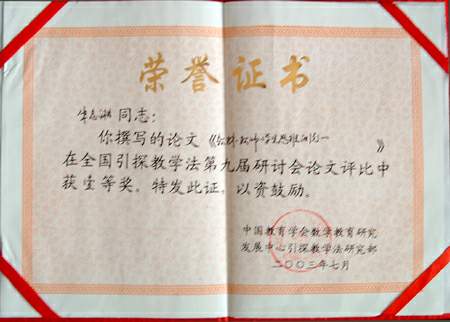 荣誉证书
同志：
你撰写的论文《
》
在全国引探教学法第九届研讨会论文评比中
获壹等奖。特发此证，以资鼓励。
中国教育学会数学教育研究
发展中心引探教学法研究部
二〇〇三年七月